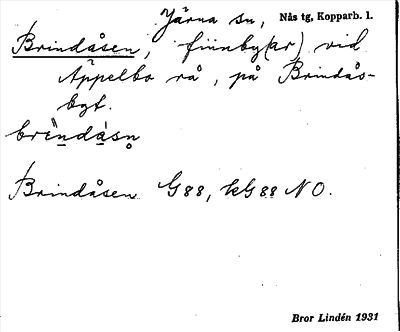 Järna sn, Nås tg, Kopparb. l.
Brindåsen, finnby(ar) vid
Äppelbo rå, på Brindås-
bgt.
Brindåsen G88, kG88 NO.
Bror Lindén 1931